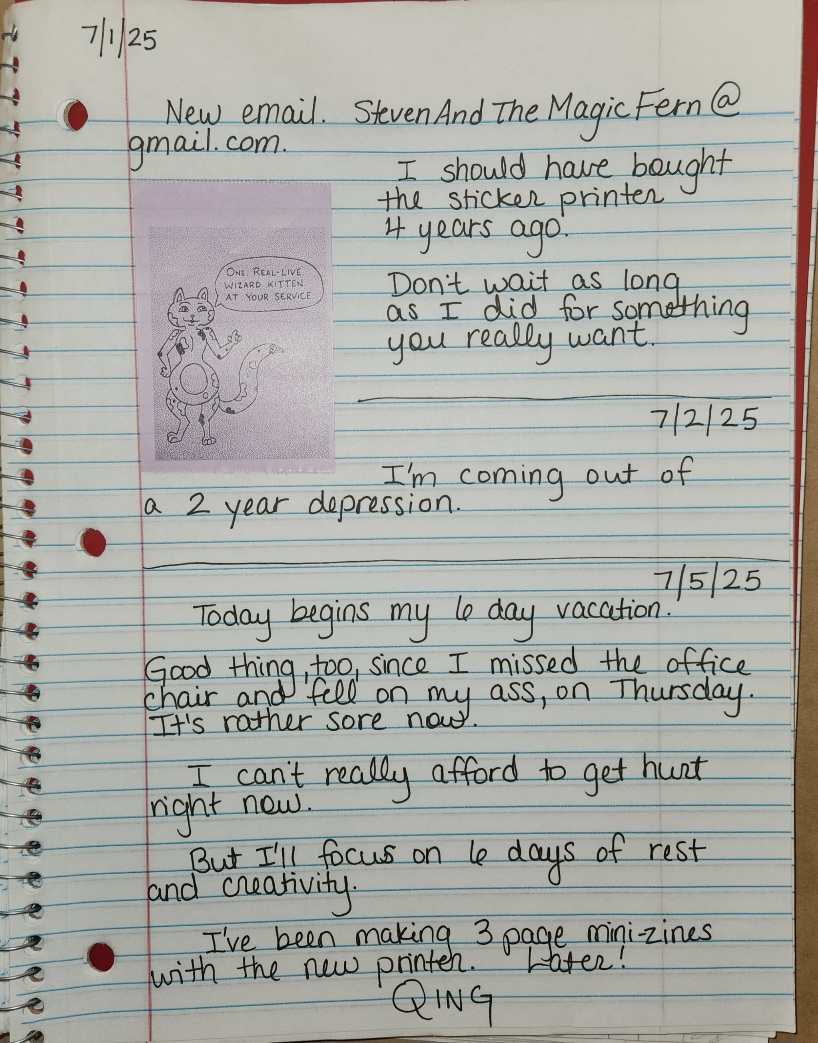 7/1/25
New email. StevenAndTheMagicFern@
gmail.com.
I should have bought
the sticker printer
4 years ago.
ONE. REAL-LIVE.
WIZARD KITTEN.
AT YOUR SERVICE.
Don't wait as long
as I did for something
you really want.
7/2/25
I'm coming out of
a 2 year depression.
7/5/25
Today begins my 6 day vacation.
Good thing, too, since I missed the office
chair and fell on my ass, on Thursday.
It's rather sore now.
I can't really afford to get hurt
right now.
But I'll focus on 6 days of rest
and creativity.
I've been making 3 page mini-zines
with the new printer. Later!
QING